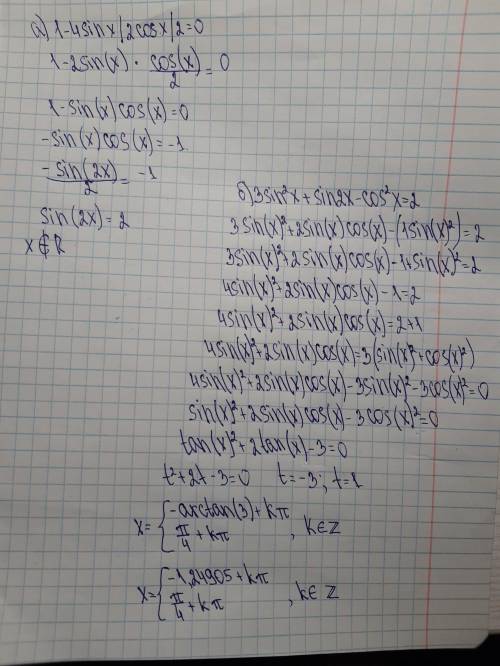 а) 1-4sinx/2cosx/2=0
1-2sin(x)·cos(x)/2=0
1-sin(x)cos(x)=0
-sin(x)cos(x)=-1
-sin(2x)/2=-1
sin(2x)=2
x∉R
б) 3sin²x+sin2x-cos²x=2
3sin(x)²+2sin(x)cos(x)-(1sin(x)²)=2
3sin(x)²+2sin(x)cos(x)-1+sin(x)²=2
4sin(x)²+2sin(x)cos(x)-1=2
4sin(x)²+2sin(x)cos(x)=2+1
4sin(x)²+2sin(x)cos(x)=3(sin(x)²+cos(x)²)
4sin(x)²+2sin(x)cos(x)-3sin(x)²-3cos(x)²=0
sin(x)²+2sin(x)cos(x)-3cos(x)²=0
tan(x)²+2tan(x)-3=0
t²+2t-3=0 t=-3; t=1
x={-arctan(3)+kπ
π/4+kπ , k∈Z
x={-1,24905+kπ
π/4+kπ , k∈Z